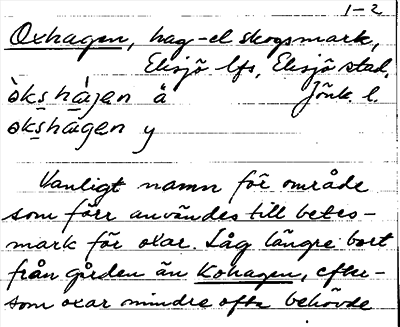 1-2
Oxhagen, hag-el skogsmark,
Eksjö lfs, Eksjö stad,
òkshàgen ä Jönk. l.
økshagen y
Vanligt namn för område
som förr användes till betes-
mark för oxar. Låg längre bort
från gården än Kohagen, efter-
som oxar mindre ofta behövde